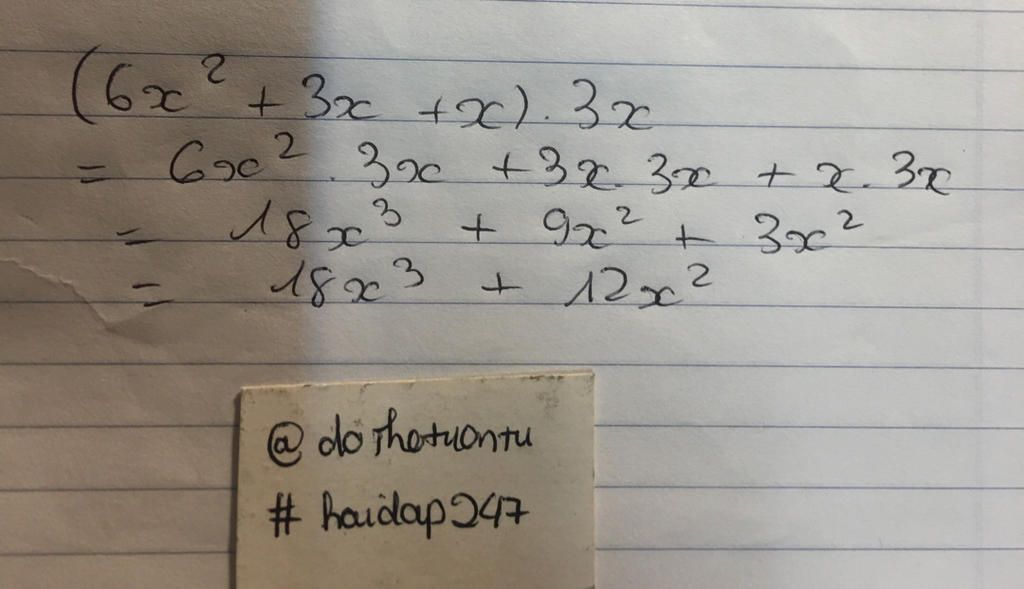 (6x² + 3x + x) . 3x
= 6x² . 3x + 3x . 3x + x . 3x
= 18x³ + 9x² + 3x²
= 18x³ + 12x²
@ dothetuantu
# hoidap247